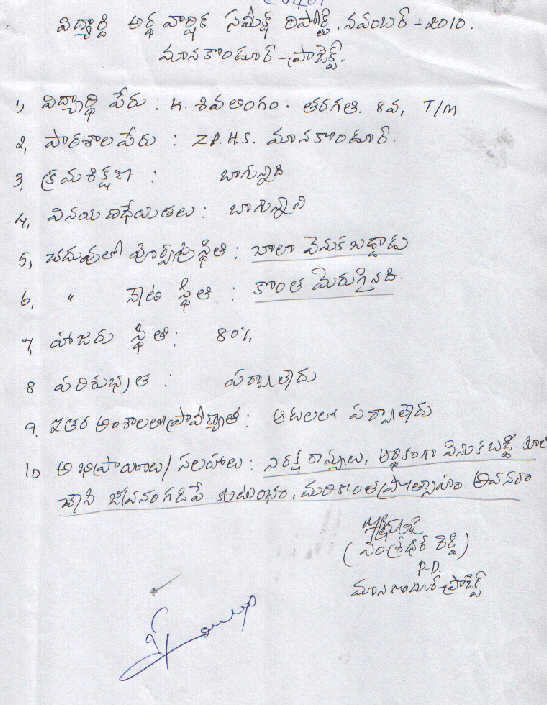 విద్యార్థి అర్థ వార్షిక సమీక్ష రిపోర్ట్, నవంబర్ - 2010.
మానకొండూర్ - ప్రాజెక్ట్.
1, విద్యార్థి పేరు : K. శివలింగం. తరగతి. 8వ, T/M
2, పాఠశాల పేరు : Z.P.H.S. మానకొండూర్.
3. క్రమశిక్షణ : బాగున్నది
4, వినయ విధేయతలు : బాగున్నవి
5, చదువులో పూర్వపుస్థితి : చాలా వెనుకబడ్డాడు
6, " నేటి స్థితి : కొంత మెరుగైనది.
7, హాజరు స్థితి : 80%
8 పరిశుభ్రత : పర్వాలేదు
9. ఇతర అంశాలలో ప్రావీణ్యత : ఆటలలో పర్వాలేదు
10 అభిప్రాయాలు/ సలహాలు : నిరక్షరాస్యులు, ఆర్థికంగా వెనుకబడి కూలి
చేసి జీవనం గడిపే కుటుంబం, మరికొంత ప్రోత్సాహం అవసరం
రెడ్డి)
P.D.
మానకొండూర్ - ప్రాజెక్ట్